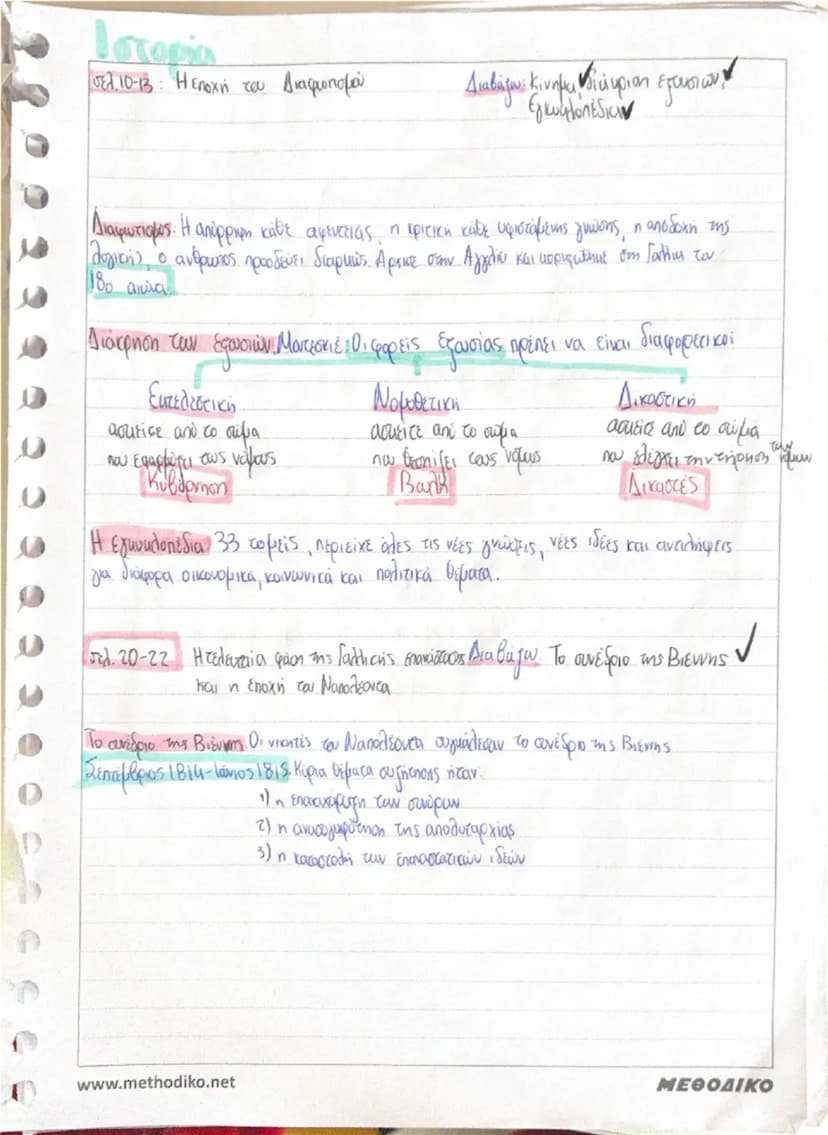 Ιστορία
σελ.10-13: Η εποχή του Διαφωτισμού Διαβάζω: Κίνημα✓, διάκριση εξουσιών✓,
Εγκυκλοπέδια✓
Διαφωτισμός: Η απόρριψη κάθε αυθεντείας, η κριτική κάθε υφιστάμενης γνώσης, η αποδοχή της
λογικής, ο άνθρωπος προοδεύει διαρκώς. Άρχισε στην Αγγλία και κορυφώθηκε στη Γαλλία τον
18ο αιώνα.
Διάκρηση των εξουσιών: Μοντεσκιέ: Οι φορείς εξουσίας πρέπει να είναι διαφορετικοί
Εκτελεστική Νομοθετική Δικαστική
ασκείσε από το σώμα ασκείσε από το σώμα ασκείσε από το σώμα
που εφαρμόζει τους νόμους που θεσπίζει τους νόμους που ελέγχει την τήρηση των νόμων
Κυβέρνηση Βουλή Δικαστές
Η εγκυκλοπέδια 33 τομείς, περιείχε όλες τις νέες γνώσεις, νέες ιδέες και αντιλήψεις
για διάφορα οικονομικά, κοινωνικά και πολιτικά θέματα.
σελ. 20-22 Η τελευταία φάση της Γαλλικής επανάστασης Διαβάζω: Το συνέδριο της Βιέννης ✓
και η εποχή του Ναπολέοντα
Το συνέδριο της Βιέννης: Οι νικητές του Ναπολέοντα συγκάλεσαν το συνέδριο της Βιέννης
Σεπτέμβριος 1814-Ιούνιος 1815. Κύρια θέματα συζήτησης ήταν:
1) η επαναχάραξη των συνόρων
2) η αναζωπύρωση της απολυταρχίας
3) η καταστολή των επαναστατικών ιδεών
www.methodiko.net ΜΕΘΟΔΙΚΟ